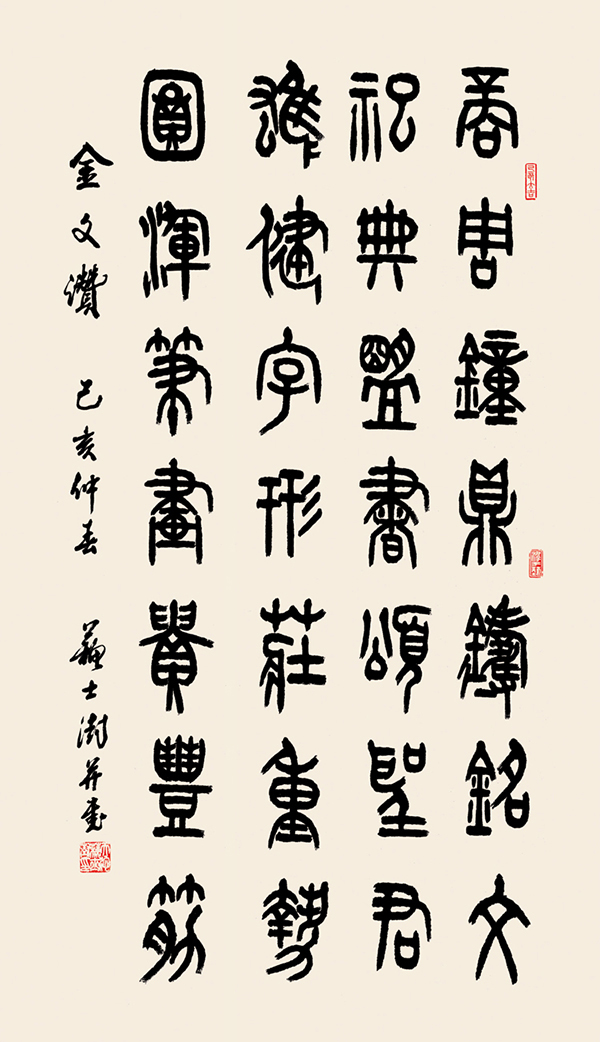 商周鐘鼎鑄銘文
祀典盟書頌聖君
雄健字形莊重勢
圓渾筆畫貴豐筋
金文讚 己亥仲春 蘇士澍并書